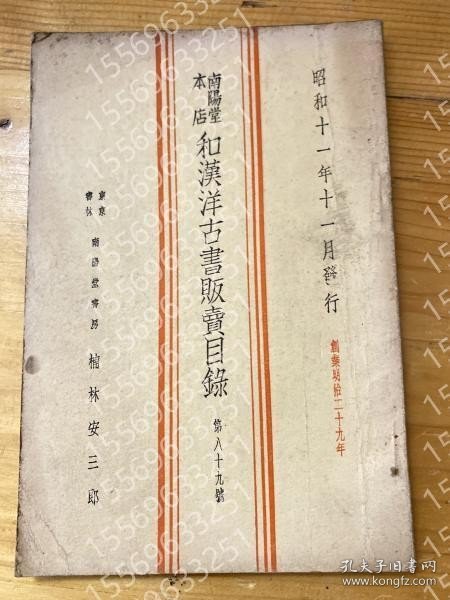 昭和十一年十一月發行
創業明治二十九年
南陽堂
本店
和漢洋古書販賣目錄
第八十九號
東京
書林
南陽堂書房
楠林安三郎
15569633251
孔夫子旧书网
www.kongfz.com